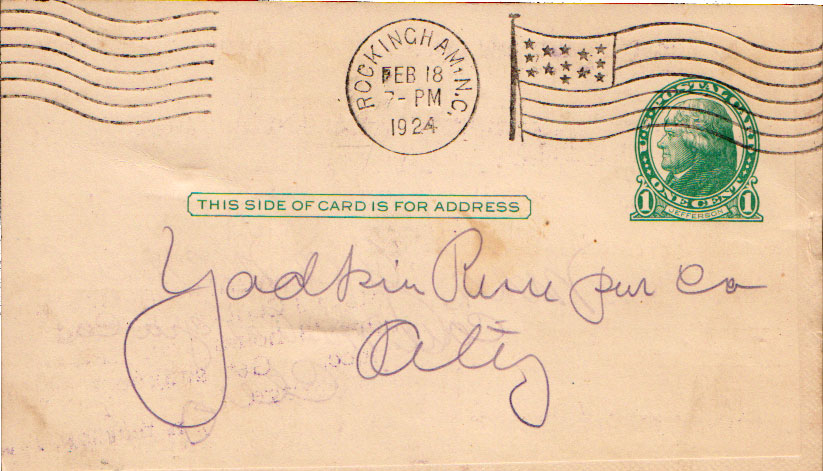 ROCKINGHAM, N.C.
FEB 18
7-PM
1924
U.S. POSTAL CARD
ONE CENT
1 JEFFERSON 1
THIS SIDE OF CARD IS FOR ADDRESS
Yadkin River Co